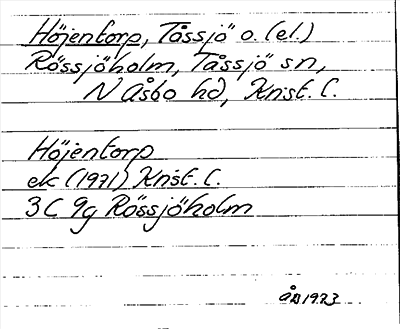 Höjentorp, Tåssjö o. (el.)
Rössjöholm, Tåssjö sn,
N Åsbo hd, Krist. l.
Höjentorp
ek (1971) Krist. l.
3C 9g Rössjöholm
1973